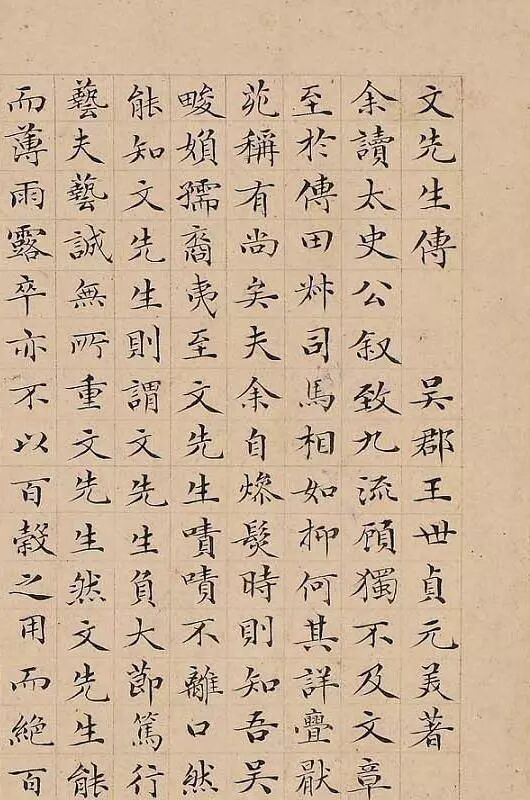 文先生傳　吳郡王世貞元美著
余讀太史公叙致九流顧獨不及文章
至於傳田叔司馬相如抑何其詳疊厭
苑稱有尚矣夫余自燥髮時則知吾吳
畯媍孺裔夷至文先生嘖嘖不離口然
能知文先生則謂文先生負大節篤行
藝夫藝誠無所重文先生然文先生能
而薄雨露卒亦不以百穀之用而絕百